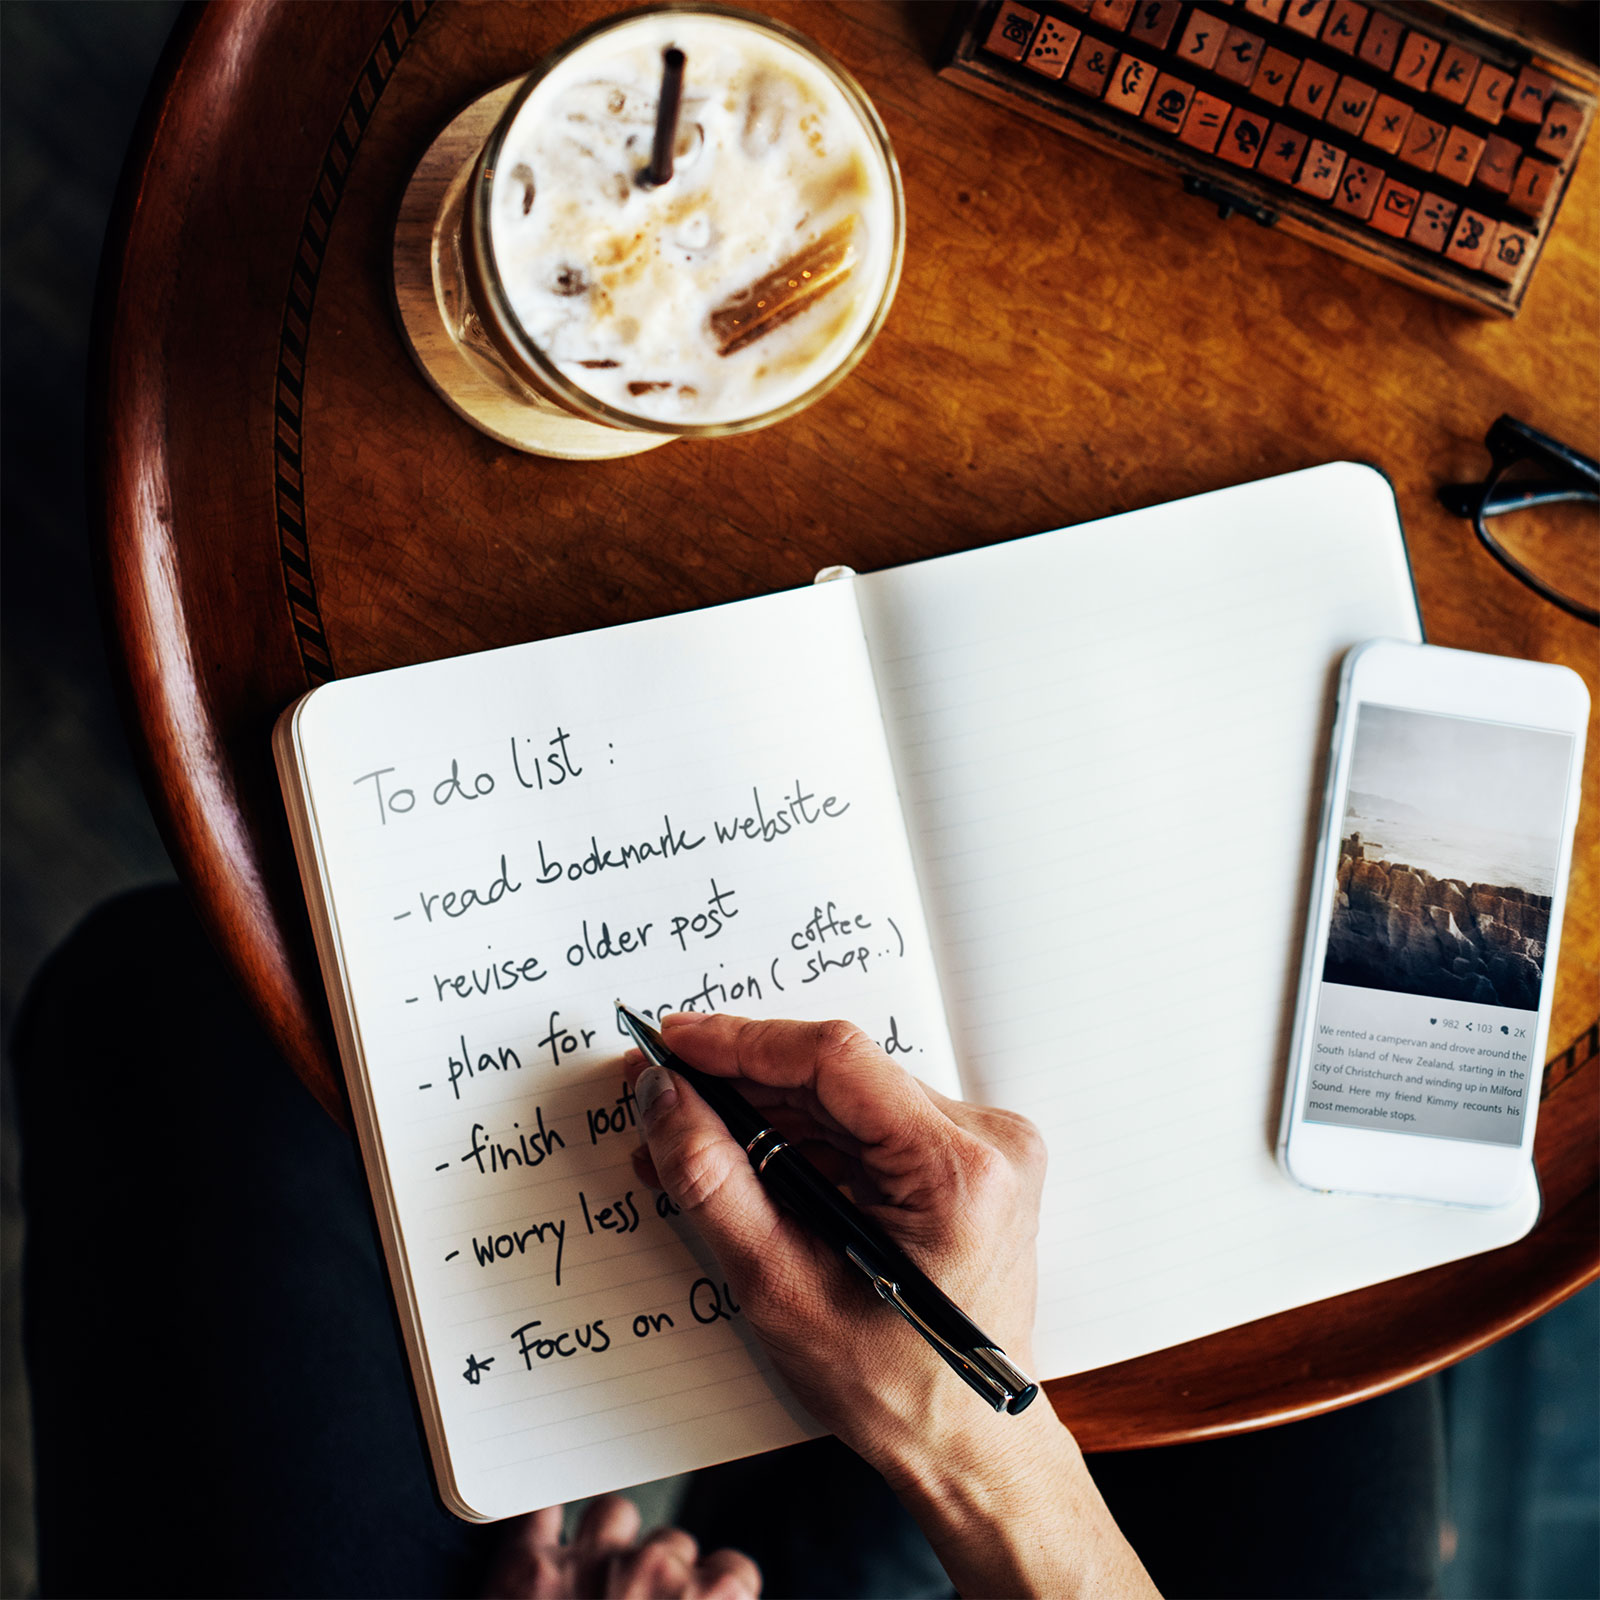 To do list :
- read bookmark website
- revise older post
- plan for location ( coffee shop.. )
- finish
- worry less
* Focus on
982 103 2K
We rented a campervan and drove around the
South Island of New Zealand, starting in the
city of Christchurch and winding up in Milford
Sound. Here my friend Kimmy recounts his
most memorable stops.
q
s t u v w x y z
i j k l m n
& = #